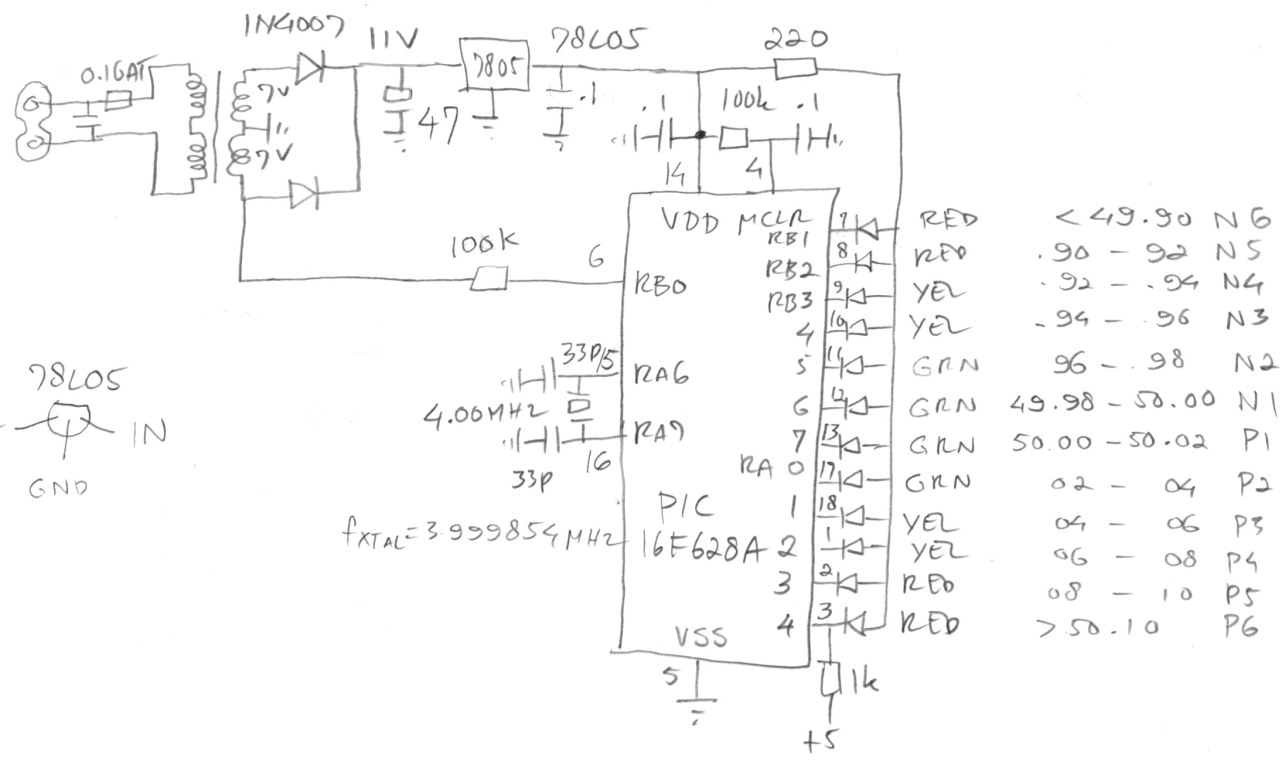 1N4007
11V
78L05
220
0.16AT
7805
7V
7V
47
.1
.1
100k
.1
14
4
VDD MCLR
7
RED
< 49.90 N6
RB1
8
RED
.90 - 92 N5
RB2
100k
6
RB0
9
YEL
.92 - .94 N4
RB3
10
YEL
.94 - 96 N3
4
33P/5
RA6
11
GRN
96 - .98 N2
5
78L05
4.00MHZ
12
GRN
49.98 - 50.00 N1
6
IN
RA7
13
GRN
50.00 - 50.02 P1
7
GND
33P
16
RA 0
17
GRN
02 - 04 P2
PIC
1
18
YEL
04 - 06 P3
fXTAL=3.999854MHZ
16F628A
2
1
YEL
06 - 08 P4
3
2
RED
08 - 10 P5
VSS
4
3
RED
> 50.10 P6
5
1k
+5